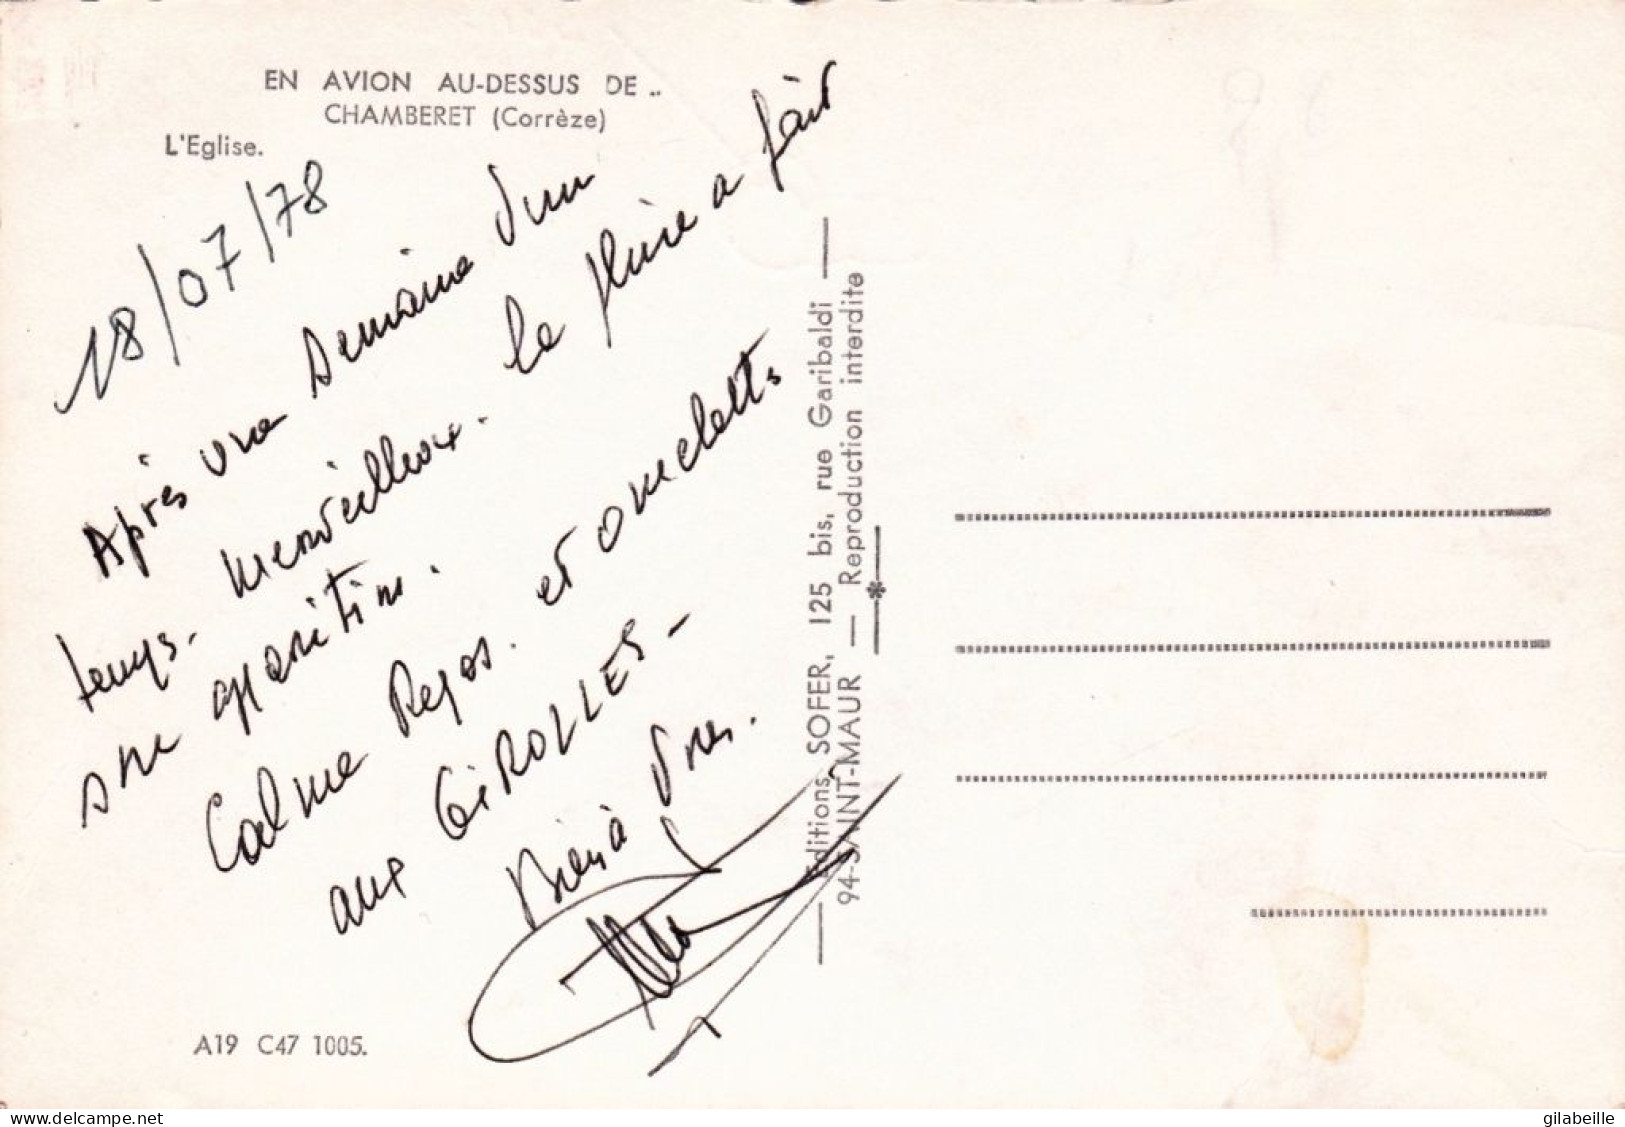 EN AVION AU-DESSUS DE ..
CHAMBERET (Corrèze)
L'Eglise.
18/07/78
Après une semaine d'un
temps merveilleux. la pluie a fait
son apparition.
Calme Repos. et omelettes
aux GiROLLES -
Bien à vous.
Editions SOFER, 125 bis, rue Garibaldi
94-SAINT-MAUR — Reproduction interdite
A19 C47 1005.
delcampe.net
gilabeille